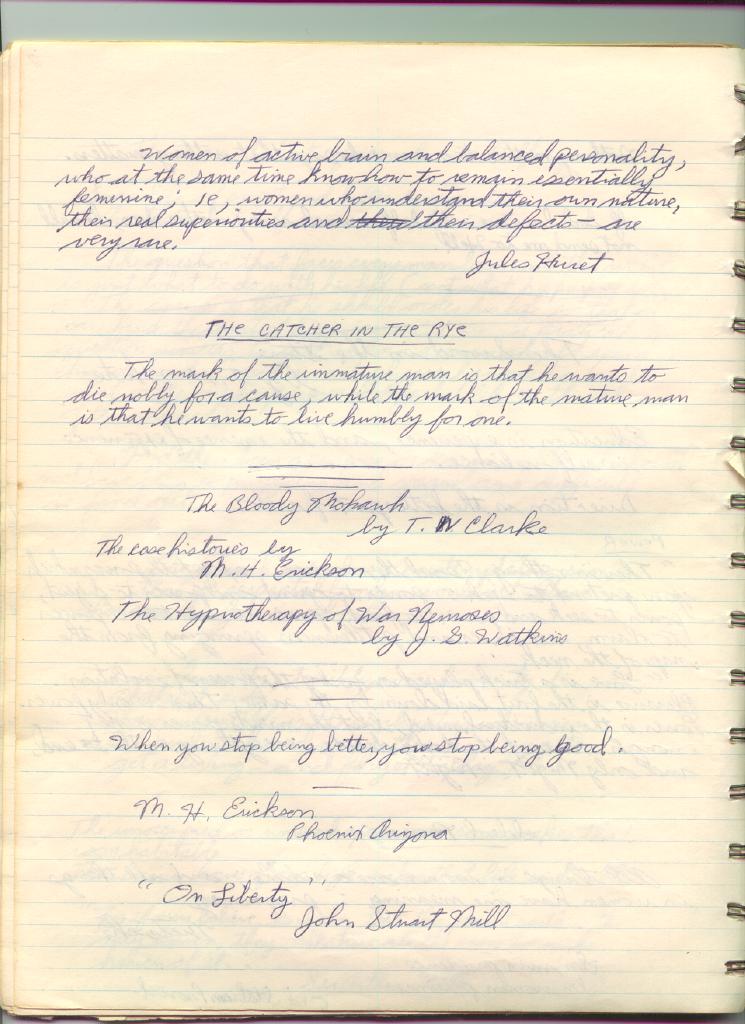 Women of active brain and balanced personality,
who at the same time know how to remain essentially
feminine; ie, women who understand their own nature,
their real superiorities and their defects — are
very rare.
Jules Huret
THE CATCHER IN THE RYE
The mark of the immature man is that he wants to
die nobly for a cause, while the mark of the mature man
is that he wants to live humbly for one.
The Bloody Mohawk
by T. W Clarke
The case histories by
M. H. Erickson
The Hypnotherapy of War Neuroses
by J. G. Watkins
When you stop being better, you stop being good.
M. H. Erickson
Phoenix Arizona
"On Liberty"
John Stuart Mill